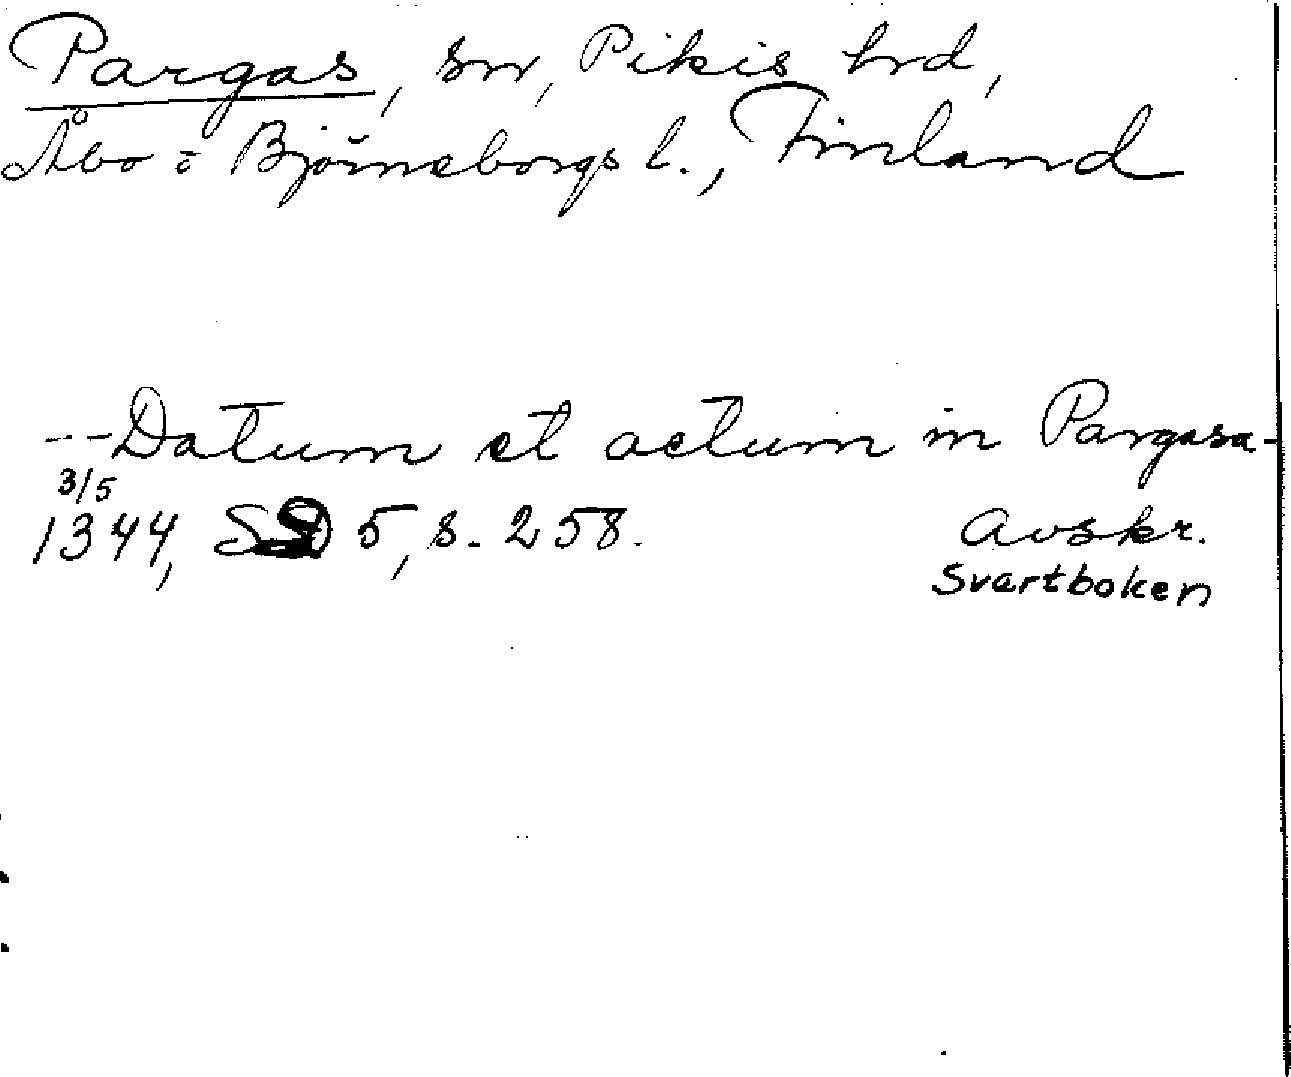 Pargas, sn, Pikis hrd,
Åbo o Björneborgs l., Finland
---Datum et actum in Pargasa-
3/5
1344, SD 5, s. 258. Avskr.
Svartboken